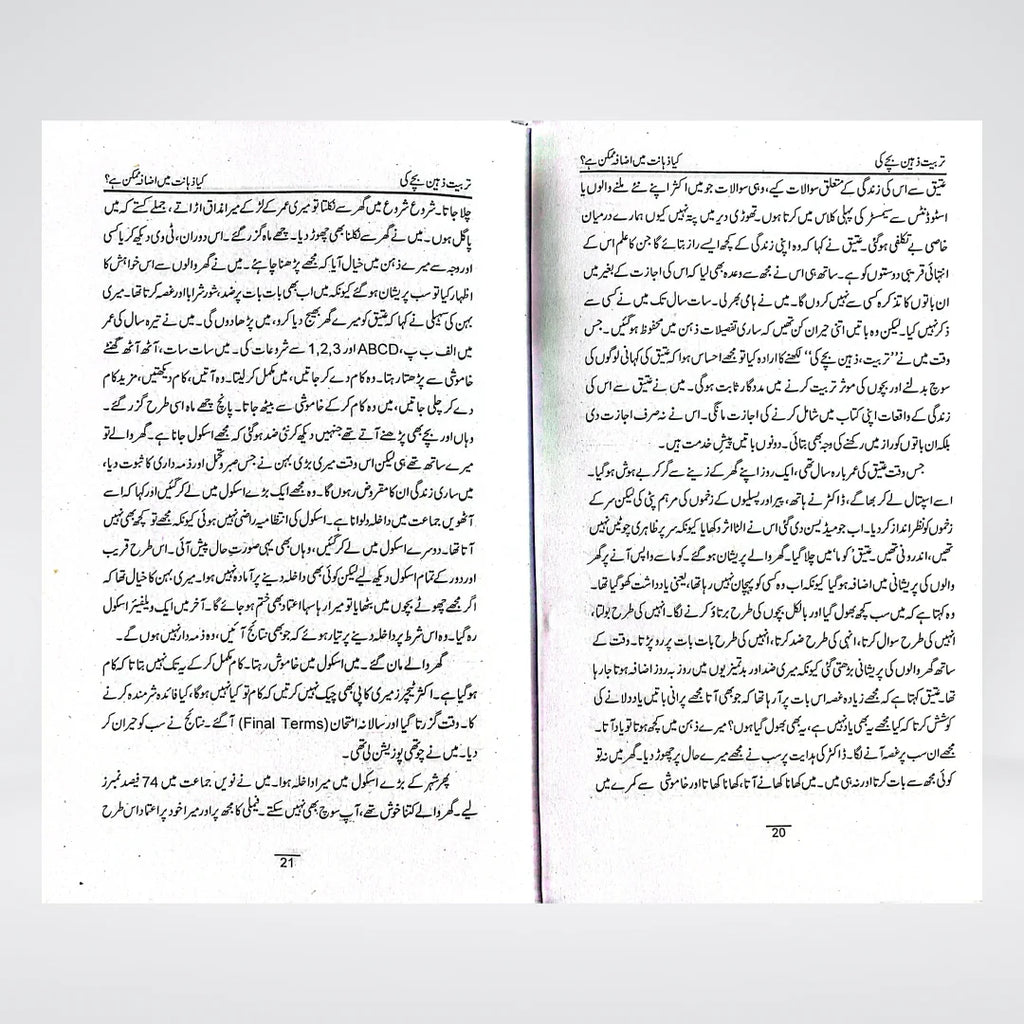 تربیت ذہین بچے کی
کیا ذہانت میں اضافہ ممکن ہے؟
عتیق سے اس کی زندگی کے متعلق سوالات کیے، وہی سوالات جو میں اکثر اپنے نئے ملنے والوں یا
اسٹوڈنٹس سے سیمسٹر کی پہلی کلاس میں کرتا ہوں۔ تھوڑی دیر میں پتہ نہیں کیوں ہمارے درمیان
خاصی بے تکلفی ہوگئی۔ عتیق نے کہا کہ وہ اپنی زندگی کے کچھ ایسے راز بتائے گا جن کا علم اس کے
انتہائی قریبی دوستوں کو ہے۔ ساتھ ہی اس نے مجھ سے وعدہ بھی لیا کہ اس کی اجازت کے بغیر میں
ان باتوں کا تذکرہ کسی سے نہیں کروں گا۔ میں نے ہامی بھر لی۔ سات سال تک میں نے کسی سے
ذکر نہیں کیا۔ لیکن وہ باتیں اتنی حیران کن تھیں کہ ساری تفصیلات ذہن میں محفوظ ہوگئیں۔ جس
وقت میں نے ”تربیت، ذہین بچے کی“ لکھنے کا ارادہ کیا تو مجھے احساس ہوا کہ عتیق کی کہانی لوگوں کی
سوچ بدلنے اور بچوں کی موثر تربیت کرنے میں مددگار ثابت ہوگی۔ میں نے عتیق سے اس کی
زندگی کے واقعات اپنی کتاب میں شامل کرنے کی اجازت مانگی۔ اس نے نہ صرف اجازت دی
بلکہ ان باتوں کو راز میں رکھنے کی وجہ بھی بتائی۔ دونوں باتیں پیش خدمت ہیں۔
جس وقت عتیق کی عمر بارہ سال تھی، ایک روز اپنے گھر کے زینے سے گر کر بے ہوش ہوگیا۔
اسے اسپتال لے کر بھاگے، ڈاکٹر نے ہاتھ، پیر اور پسلیوں کے زخموں کی مرہم پٹی کی لیکن سر کے
زخموں کو نظر انداز کر دیا۔ اب جو میڈیسن دی گئی اس نے الٹا اثر دکھایا کیونکہ سر پر ظاہری چوٹیں نہیں
تھیں، اندرونی تھیں۔ عتیق ’کوما‘ میں چلا گیا۔ گھر والے پریشان ہوگئے۔ کوما سے واپس آنے پر گھر
والوں کی پریشانی میں اضافہ ہوگیا کیونکہ اب وہ کسی کو پہچان نہیں رہا تھا، یعنی یادداشت کھو گیا تھا۔
وہ کہتا ہے کہ میں سب کچھ بھول گیا اور بالکل بچوں کی طرح برتاؤ کرنے لگا۔ انہیں کی طرح بولتا،
انہیں کی طرح سوال کرتا، انہی کی طرح ضد کرتا، انہیں کی طرح بات بات پر رو پڑتا۔ وقت کے
ساتھ گھر والوں کی پریشانی بڑھتی گئی کیونکہ میری ضد اور بدتمیزیوں میں روز بہ روز اضافہ ہوتا جا رہا
تھا۔ عتیق کہتا ہے کہ مجھے زیادہ غصہ اس بات پر آرہا تھا کہ جو بھی آتا مجھے پرانی باتیں یاد دلانے کی
کوشش کرتا کہ کیا مجھے یہ بھی یاد نہیں ہے، یہ بھی بھول گیا ہوں؟ میرے ذہن میں کچھ ہوتا تو یاد آتا۔
مجھے ان سب پر غصہ آنے لگا۔ ڈاکٹر کی ہدایت پر سب نے مجھے میرے حال پر چھوڑ دیا۔ گھر میں نہ تو
کوئی مجھ سے بات کرتا اور نہ ہی میں۔ میں کھانا کھانے آتا، کھانا کھاتا اور خاموشی سے کمرے میں
20
تربیت ذہین بچے کی
کیا ذہانت میں اضافہ ممکن ہے؟
چلا جاتا۔ شروع شروع میں گھر سے نکلتا تو میری عمر کے لڑکے میرا مذاق اڑاتے، جملے کستے کہ میں
پاگل ہوں۔ میں نے گھر سے نکلنا بھی چھوڑ دیا۔ چھے ماہ گزر گئے۔ اس دوران، ٹی وی دیکھ کر یا کسی
اور وجہ سے میرے ذہن میں خیال آیا کہ مجھے پڑھنا چاہئے۔ میں نے گھر والوں سے اس خواہش کا
اظہار کیا تو سب پریشان ہوگئے کیونکہ میں اب بھی بات بات پر ضد، شور شرابا اور غصہ کرتا تھا۔ میری
بہن کی سہیلی نے کہا کہ عتیق کو میرے گھر بھیج دیا کرو، میں پڑھا دوں گی۔ میں نے تیرہ سال کی عمر
میں الف ب پ، ABCD اور 1,2,3 سے شروعات کی۔ میں سات سات، آٹھ آٹھ گھنٹے
خاموشی سے پڑھتا رہتا۔ وہ کام دے کر جاتیں، میں مکمل کر لیتا۔ وہ آتیں، کام دیکھتیں، مزید کام
دے کر چلی جاتیں، میں وہ کام کر کے خاموشی سے بیٹھ جاتا۔ پانچ چھے ماہ اسی طرح گزر گئے۔
وہاں اور بچے بھی پڑھنے آتے تھے جنہیں دیکھ کر نئی ضد ہوگئی کہ مجھے اسکول جانا ہے۔ گھر والے تو
میرے ساتھ تھے ہی لیکن اس وقت میری بڑی بہن نے جس صبر و تحمل اور ذمہ داری کا ثبوت دیا،
میں ساری زندگی ان کا مقروض رہوں گا۔ وہ مجھے ایک بڑے اسکول میں لے کر گئیں اور کہا کہ اسے
آٹھویں جماعت میں داخلہ دلوانا ہے۔ اسکول کی انتظامیہ راضی نہیں ہوئی کیونکہ مجھے تو کچھ بھی نہیں
آتا تھا۔ دوسرے اسکول میں لے کر گئیں، وہاں بھی یہی صورت حال پیش آئی۔ اس طرح قریب
اور دور کے تمام اسکول دیکھ لیے لیکن کوئی بھی داخلہ دینے پر آمادہ نہیں ہوا۔ میری بہن کا خیال تھا کہ
اگر مجھے چھوٹے بچوں میں بٹھایا تو میرا رہا سہا اعتماد بھی ختم ہو جائے گا۔ آخر میں ایک ویلفیئر اسکول
رہ گیا۔ وہ اس شرط پر داخلہ دینے پر تیار ہوئے کہ جو بھی نتائج آئیں، وہ ذمہ دار نہیں ہوں گے۔
گھر والے مان گئے۔ میں اسکول میں خاموش رہتا۔ کام مکمل کر کے یہ تک نہیں بتاتا کہ کام
ہوگیا ہے۔ اکثر ٹیچرز میری کاپی بھی چیک نہیں کرتیں کہ کام تو کیا نہیں ہوگا، کیا فائدہ شرمندہ کرنے
کا۔ وقت گزرتا گیا اور سالانہ امتحان (Final Terms) آگئے۔ نتائج نے سب کو حیران کر
دیا۔ میں نے چوتھی پوزیشن لی تھی۔
پھر شہر کے بڑے اسکول میں میرا داخلہ ہوا۔ میں نے نویں جماعت میں 74 فیصد نمبرز
لیے۔ گھر والے کتنا خوش تھے، آپ سوچ بھی نہیں سکتے۔ فیملی کا مجھ پر اور میرا خود پر اعتماد اس طرح
21